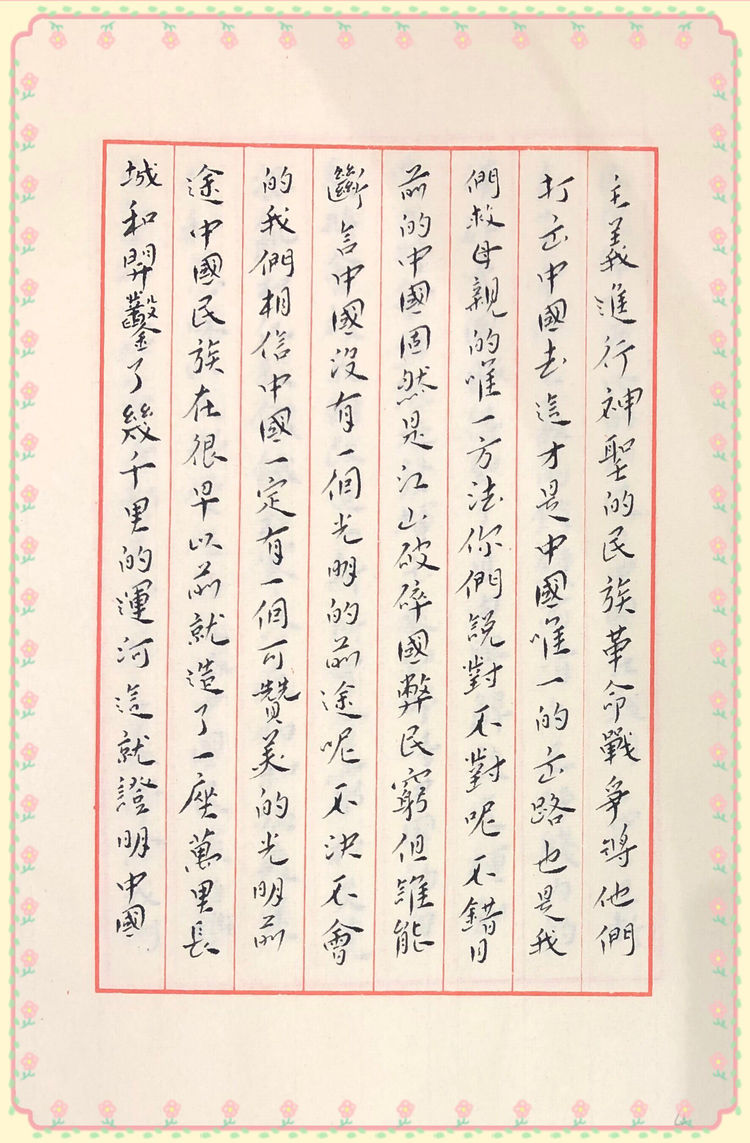 主義進行神聖的民族革命戰爭將他們
打出中國去這才是中國唯一的出路也是我
們救母親的唯一方法你們說對不對呢不錯目
前的中國固然是江山破碎國弊民窮但誰能
斷言中國沒有一個光明的前途呢不決不會
的我們相信中國一定有一個可贊美的光明前
途中國民族在很早以前就造了一座萬里長
城和開鑿了幾千里的運河這就證明中國